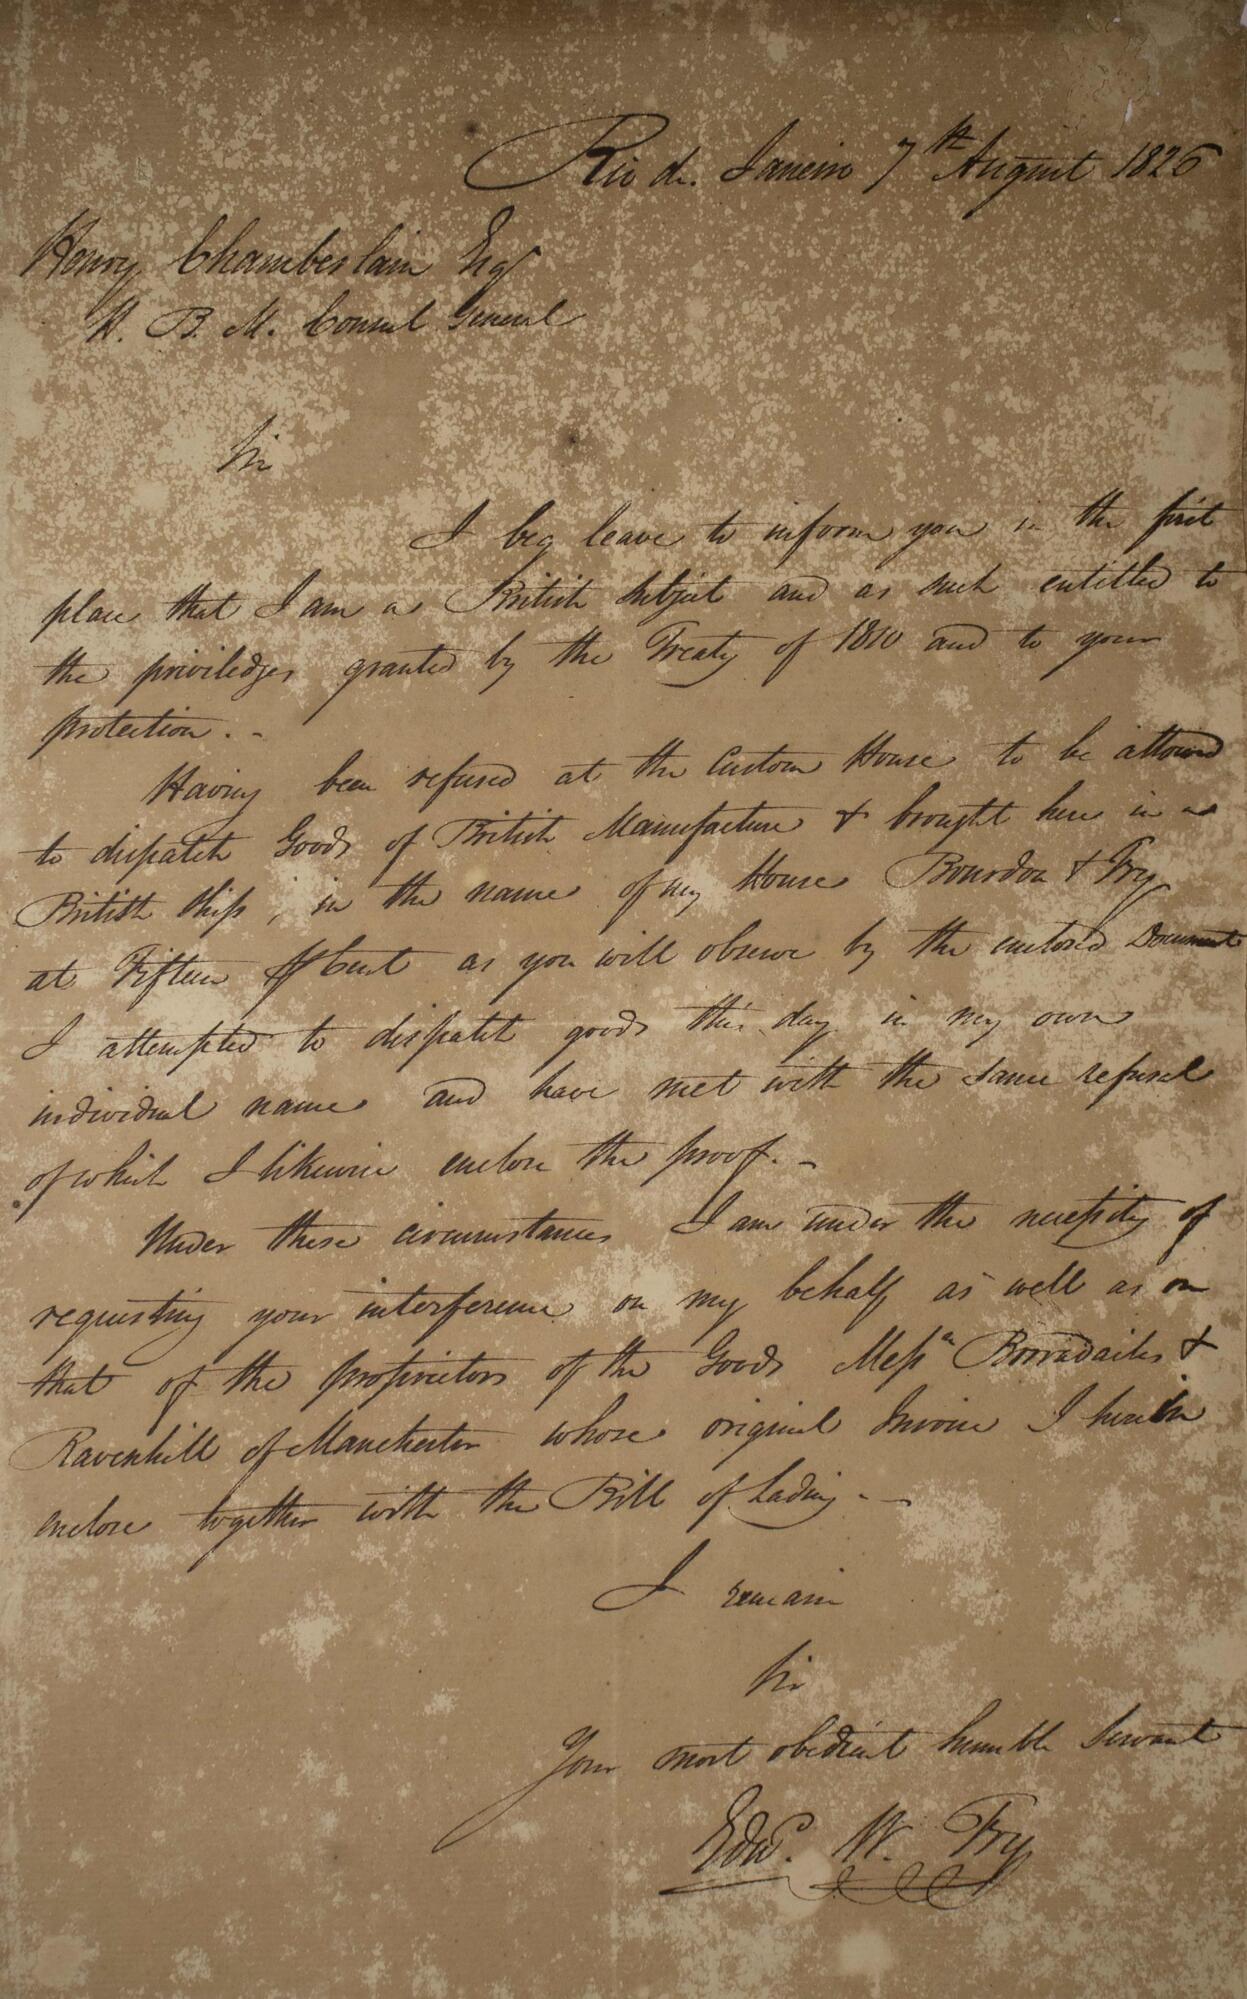 Rio de Janeiro 7th August 1826
Henry Chamberlain Esqr
H. B. M. Consul General
Sir
I beg leave to inform you in the first
place that I am a British Subject and as such entitled to
the priviledges granted by the Treaty of 1810 and to your
protection. -
Having been refused at the Custom House to be allowed
to dispatch Goods of British Manufacture & brought here in a
British Ship, in the name of my House Bourdon & Fry
at Fifteen P Cent as you will observe by the enclosed Document
I attempted to dispatch goods this day in my own
individual name and have met with the same refusal
of which I likewise enclose the proof. -
Under these circumstances I am under the necessity of
requesting your interference on my behalf as well as on
that of the proprietors of the Goods Messrs Borradailes &
Ravenhill of Manchester whose original Invoice I herein
enclose together with the Bill of Lading - -
I remain
Sir
Your most obedient humble Servant
Edwd. W. Fry